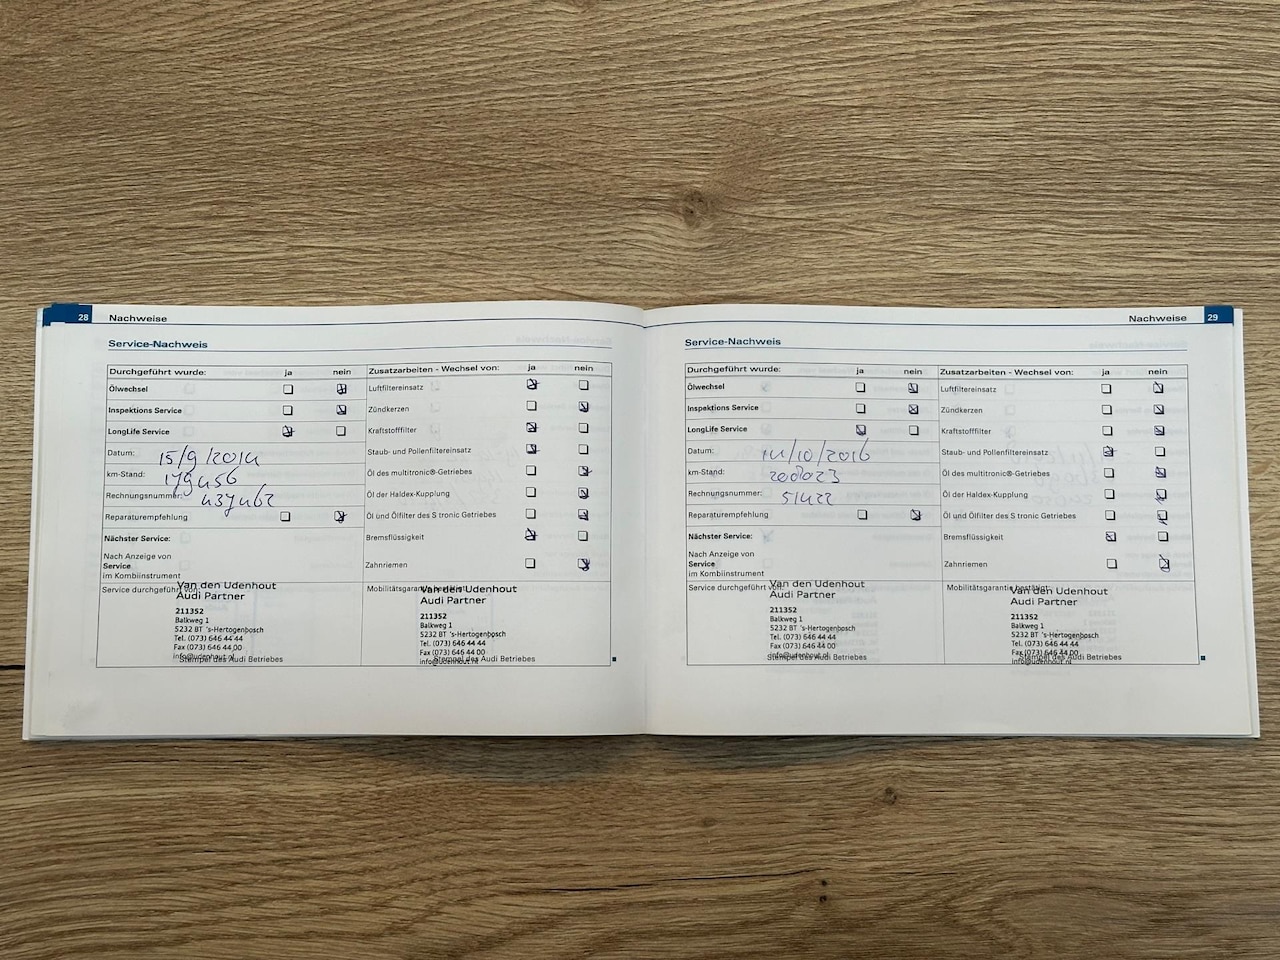 28 Nachweise
Service-Nachweis
Durchgeführt wurde: ja nein
Ölwechsel
Inspektions Service
LongLife Service
Datum: 15/9/2014
km-Stand: 179456
Rechnungsnummer: 437462
Reparaturempfehlung
Nächster Service:
Nach Anzeige von
Service
im Kombiinstrument
Zusatzarbeiten - Wechsel von: ja nein
Luftfiltereinsatz
Zündkerzen
Kraftstofffilter
Staub- und Pollenfiltereinsatz
Öl des multitronic®-Getriebes
Öl der Haldex-Kupplung
Öl und Ölfilter des S tronic Getriebes
Bremsflüssigkeit
Zahnriemen
Service durchgeführt von:
Van den Udenhout
Audi Partner
211352
Balkweg 1
5232 BT 's-Hertogenbosch
Tel. (073) 646 44 44
Fax (073) 646 44 00
info@udenhout.nl
Stempel des Audi Betriebes
Mobilitätsgarantie bestätigt:
Van den Udenhout
Audi Partner
211352
Balkweg 1
5232 BT 's-Hertogenbosch
Tel. (073) 646 44 44
Fax (073) 646 44 00
info@udenhout.nl
Stempel des Audi Betriebes
Nachweise 29
Service-Nachweis
Durchgeführt wurde: ja nein
Ölwechsel
Inspektions Service
LongLife Service
Datum: /10/2016
km-Stand: 200023
Rechnungsnummer: 51422
Reparaturempfehlung
Nächster Service:
Nach Anzeige von
Service
im Kombiinstrument
Zusatzarbeiten - Wechsel von: ja nein
Luftfiltereinsatz
Zündkerzen
Kraftstofffilter
Staub- und Pollenfiltereinsatz
Öl des multitronic®-Getriebes
Öl der Haldex-Kupplung
Öl und Ölfilter des S tronic Getriebes
Bremsflüssigkeit
Zahnriemen
Service durchgeführt von:
Van den Udenhout
Audi Partner
211352
Balkweg 1
5232 BT 's-Hertogenbosch
Tel. (073) 646 44 44
Fax (073) 646 44 00
info@udenhout.nl
Stempel des Audi Betriebes
Mobilitätsgarantie bestätigt:
Van den Udenhout
Audi Partner
211352
Balkweg 1
5232 BT 's-Hertogenbosch
Tel. (073) 646 44 44
Fax (073) 646 44 00
info@udenhout.nl
Stempel des Audi Betriebes